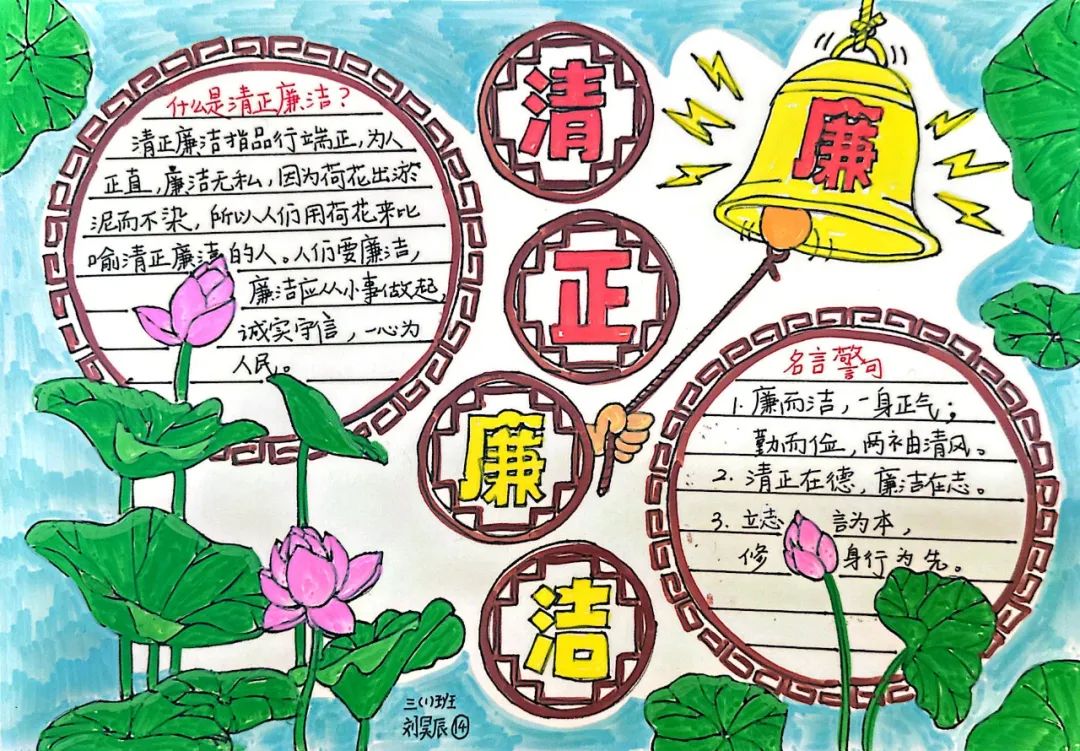 什么是清正廉洁？
清正廉洁指品行端正，为人
正直，廉洁无私，因为荷花出淤
泥而不染，所以人们用荷花来比
喻清正廉洁的人。人们要廉洁，
廉洁应从小事做起，
诚实守信，一心为
人民。
清
正
廉
洁
廉
名言警句
1. 廉而洁，一身正气；
勤而俭，两袖清风。
2. 清正在德，廉洁在志。
3. 立志言为本，
修身行为先。
三（1）班
刘昊辰 14